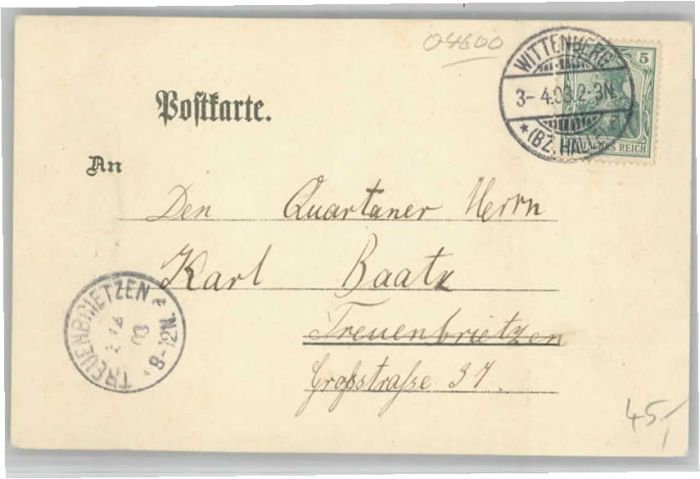 04600
WITTENBERG
3-4.03.2-3N.
* (BZ. HALLE)
5
DEUTSCHES REICH
Postkarte.
An
Den Quartaner Herrn
Karl Baatz
Treuenbrietzen
Großstraße 37.
TREUENBRIETZEN
03
8-12N.
45,-